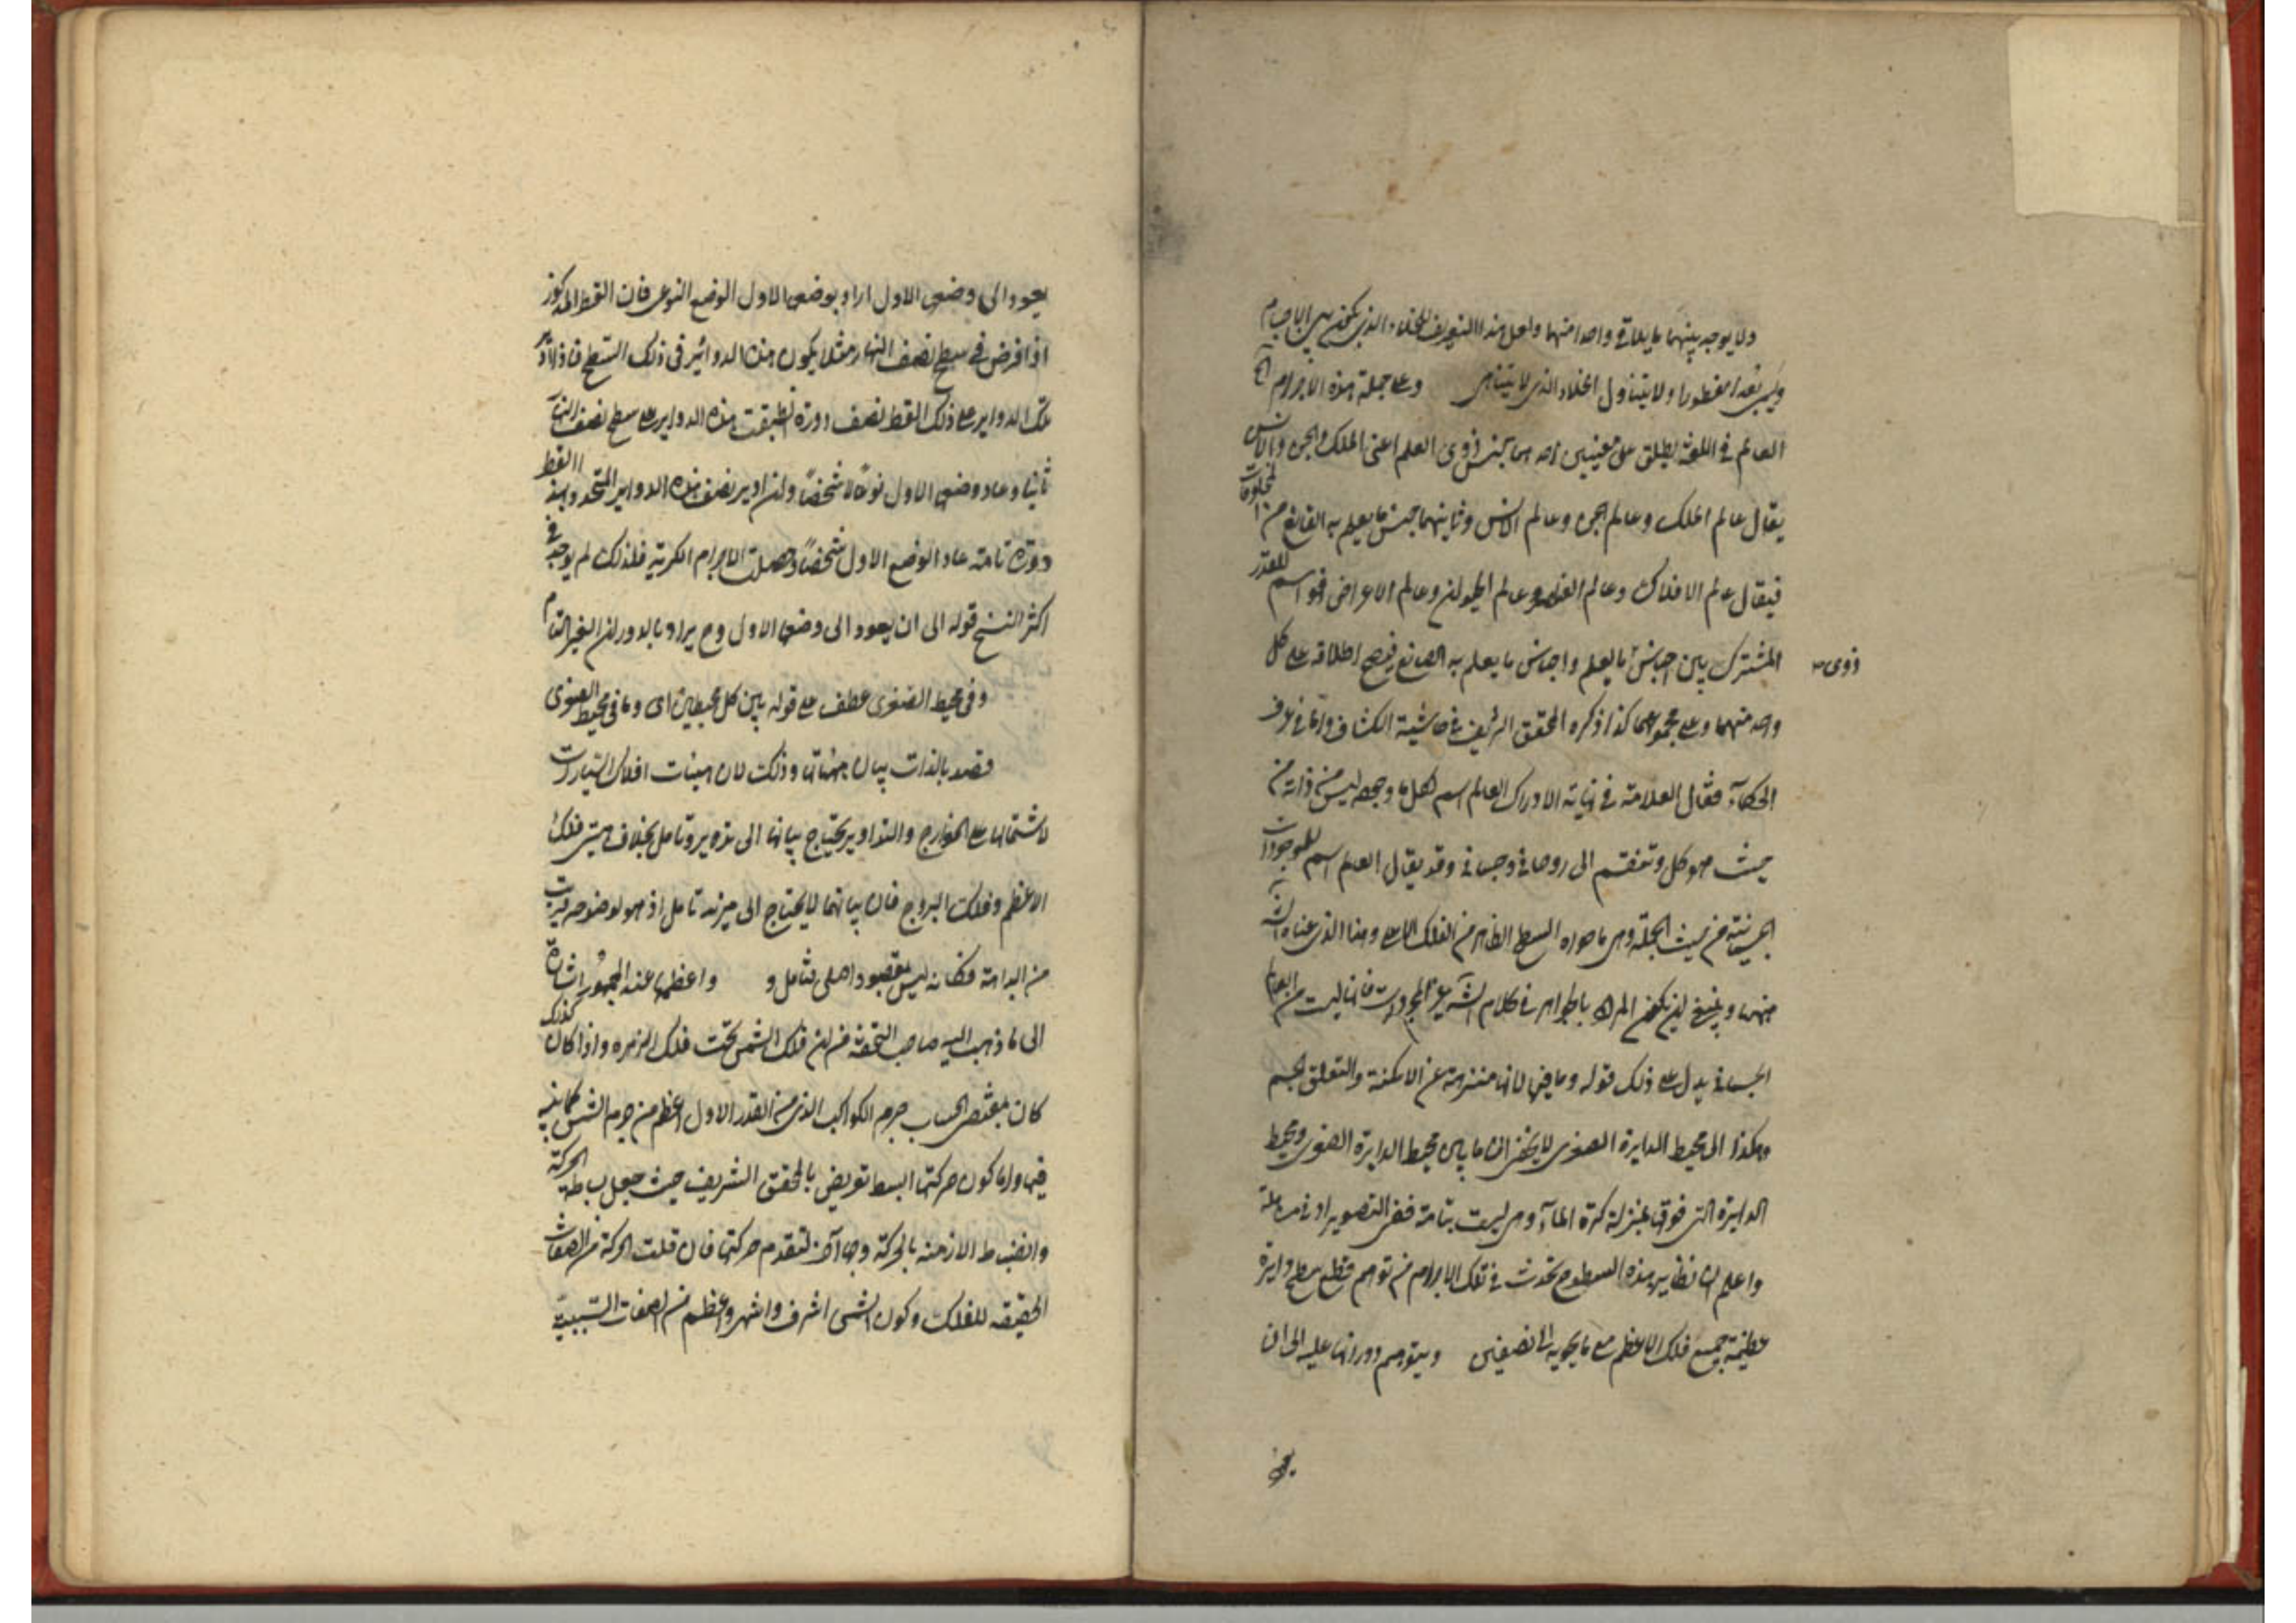 ولا يوجد بينهما ما يلاقى واحدا منهما ولعل هذا التعريف للخلاء الذى يكون بين الاجسام
ويسمى بعدا مفطورا ولا يتناول الخلاء الذى لا يتناهى وعلى جملة هذه الاجرام
العالم فى اللغة يطلق على معنيين احدهما جنس ذوى العلم اعنى الملك والجن والانس
يقال عالم الملك وعالم الجن وعالم الانس وثانيهما جنس ما يعلم به الصانع من المخلوقات
فيقال عالم الافلاك وعالم العناصر وعالم الحيوان وعالم الاعراض فهو اسم للقدر
المشترك بين اجناس ما يعلم واجناس ما يعلم به الصانع فيصح اطلاقه على كل
ذوى
واحد منهما وعلى مجموعهما كذا ذكره المحقق الشريف فى حاشية الكشاف واما فى عرف
الحكماء فقال العلامة فى نهاية الادراك العالم اسم لكل ما وجوده ليس من ذاته من
حيث هو كل وتنقسم الى روحانى وجسمانى وقد يقال العالم اسم للموجودات
الجسمانية من حيث الجملة وهى ما حواه السطح الظاهر من الفلك الاعلى وهذا الذى عناه الش
منهما وينبغى ان يكون المراد بالجواهر فى كلام الش غير المجردات فانها ليست من العالم
الجسمانى يدل على ذلك قوله وما فيها لانها منزهة عن الامكنة والتعلق بجسم
وهكذا الى محيط الدايرة الصغرى لا يخفى ان ما بين محيط الدايرة الصغرى ومحيط
الدايرة التى فوقها بمنزلة كرة الماء وهى ليست بتامة ففى التصوير ادنى مساهلة
واعلم ان نظاير هذه السطوح تحدث فى تلك الاجرام من توهم قطع سطح دايرة
عظيمة جميع فلك الاعظم مع ما يحويه بنصفين ويتوهم دورانها عليه الى ان
يعود
يعود الى وضعها الاول اراد بوضعها الاول الوضع النوعى فان القطر المذكور
اذا فرض فى سطح نصف النهار مثلا يكون هذه الدوائر فى ذلك السطح فاذا ادير
تلك الدواير على ذلك القطر نصف دورة انطبقت هذه الدواير على سطح نصف النهار
ثانيا وعاد وضعها الاول نوعا لا شخصا وان ادير نصف هذه الدواير المتحدد بهذا القطر
دورة تامة عاد الوضع الاول شخصا وحصلت الاجرام الكرية فلذلك لم يوجد فى
اكثر النسخ قوله الى ان يعود الى وضعها الاول وح يراد بالدوران الغير التام
وفى محيط الصغرى عطف على قوله بين كل محيطين اى وما فى محيط الصغرى
قصد بالذات بيان هيئاتها وذلك لان هيئات افلاك السيارات
لاشتمالها على الخوارج والتداوير يحتاج بيانها الى تدبر وتامل بخلاف هيئتى فلك
الاعظم وفلك البروج فان بيانهما لا يحتاج الى مزيد تامل اذ هو لوضوحه قريب
من البداهة فكانه ليس مقصود اصلى فتامل و واعظمها عند الجمهور اشارة
الى ما ذهب اليه صاحب التحفة من ان فلك الشمس تحت فلك الزهرة واذا كان كذلك
كان بمقتضى الحساب جرم الكواكب الذى من القدر الاول اعظم من جرم الشمس كما بينه
فيها واما كون حركتها ابسط تعريض بالمحقق الشريف حيث جعل بساطة الحركة
وانضباط الازمنة بالحركة وجها آخر لتقدم حركتها فان قلت الحركة من الصفات
الحقيقة للفلك وكون الشمس اشرف واشهر واعظم من الصفات السببية